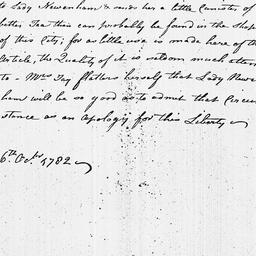 to Lady Newenham & sends her a little Canister of
better Tea than can probably be found in the Shops
of this City; for as little use is made here of the
Article, the Quality of it is seldom much attended
to - Mrs Jay flatters herself that Lady Newen
ham will be so good as to admit that Circum
stance as an apology for this Liberty
6th Octbr 1782